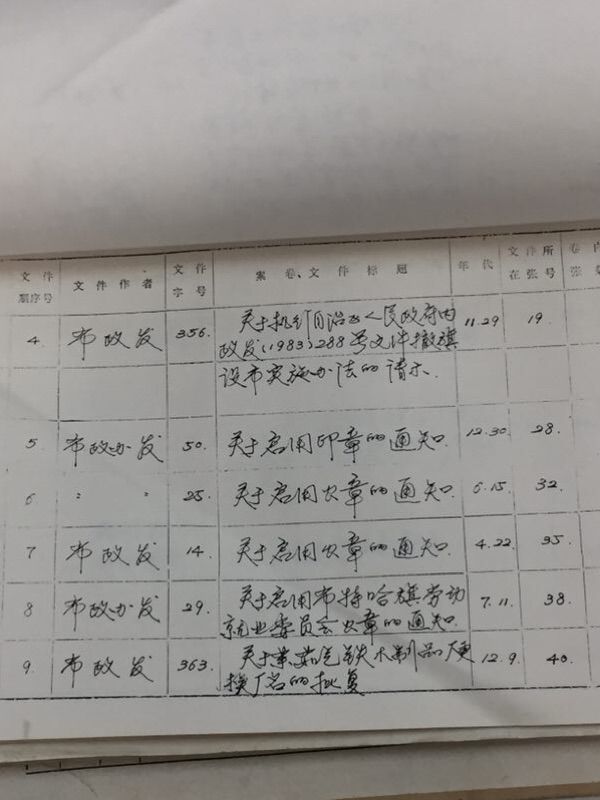 文件顺序号 文件作者 文件字号 案卷、文件标题 年代 文件所在张号 卷内
4. 布政发 356. 关于执行自治区人民政府内 11.29 19.
政发(1983)288号文件撤旗
设市实施办法的请示.
5 布政办发 50. 关于启用印章的通知. 12.30. 28.
6 〃 〃 25. 关于启用公章的通知. 6.15. 32.
7 布政发 14. 关于启用公章的通知. 4.22. 35.
8 布政办发 29. 关于启用布特哈旗劳动 7.11. 38.
就业委员会公章的通知.
9. 布政发 363. 关于 铁木制品厂更 12.9. 40.
换厂名的批复